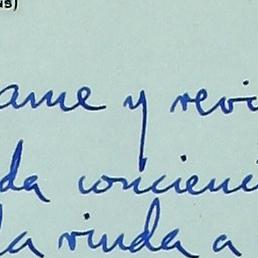 s)
ame y revi
da concienci
la rinda a